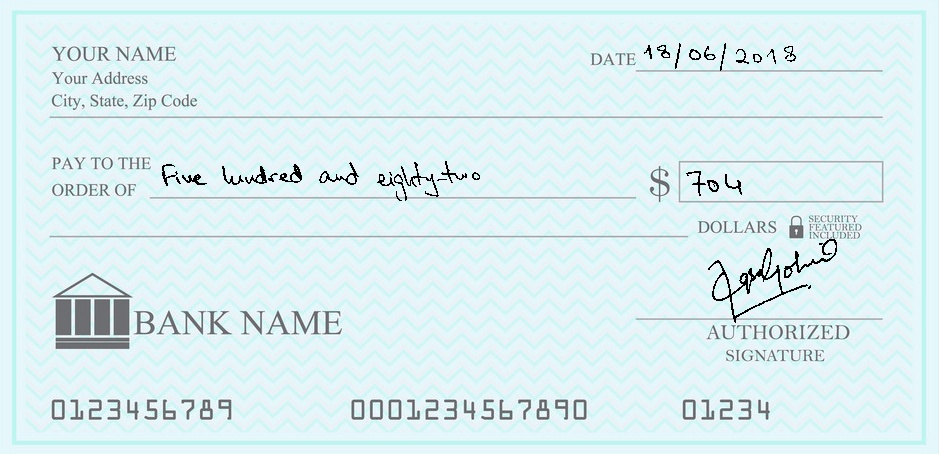 YOUR NAME
DATE 18/06/2018
Your Address
City, State, Zip Code
PAY TO THE
ORDER OF Five hundred and eighty-two $ 704
DOLLARS SECURITY
FEATURED
INCLUDED
BANK NAME
AUTHORIZED
SIGNATURE
0123456789 0001234567890 01234